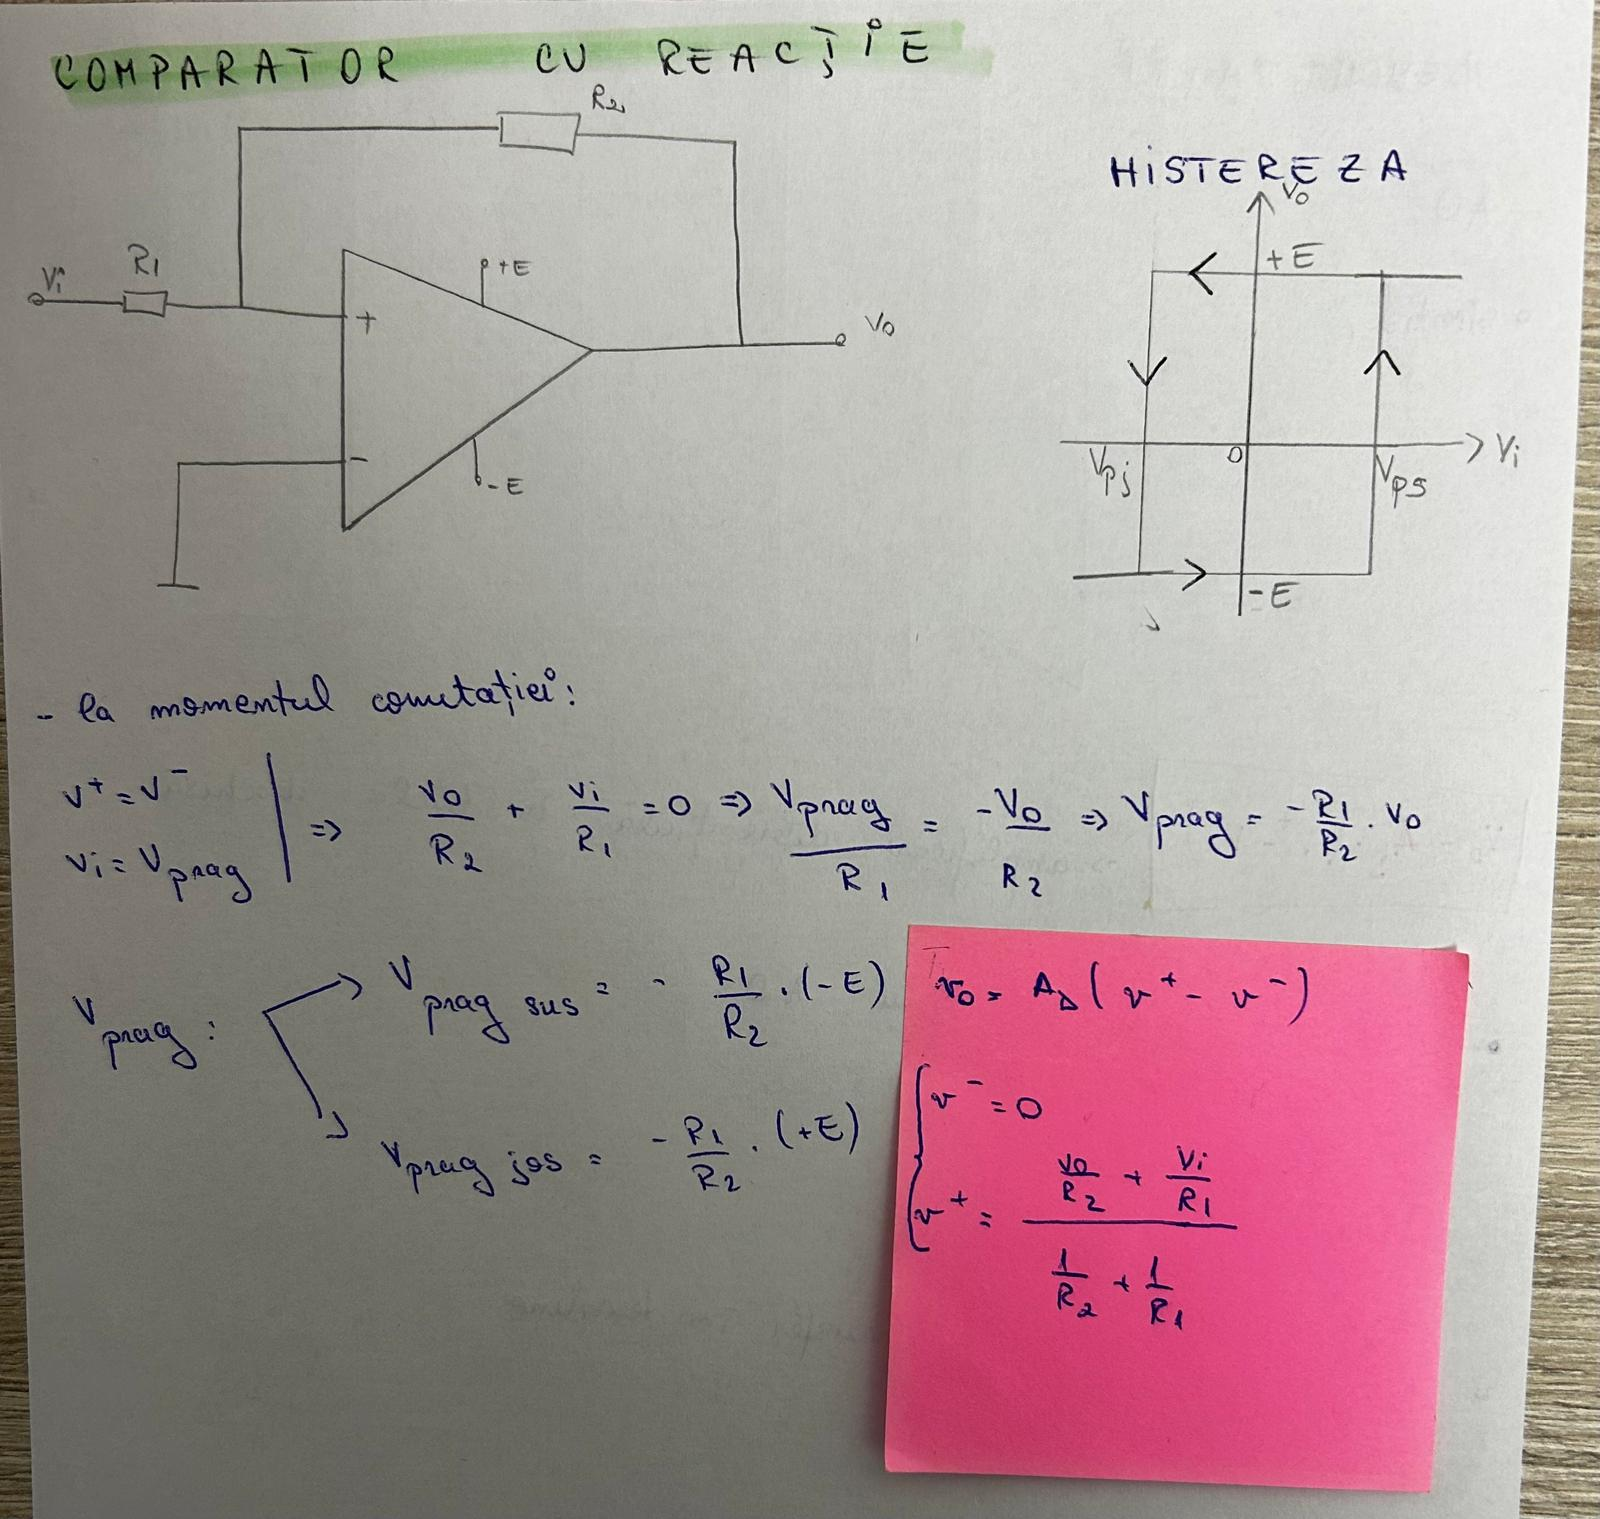 COMPARATOR CU REACȚIE
R2
Vi R1
+
+E
V0
-
-E
HiSTEREZA
V0
+E
Vpj
0
Vps
Vi
-E
- la momentul comutației:
v+ = v-
vi = Vprag
=> V0/R2 + Vi/R1 = 0 => Vprag/R1 = -V0/R2 => Vprag = -R1/R2 . V0
Vprag :
Vprag sus = - R1/R2 . (-E)
Vprag jos = - R1/R2 . (+E)
v0 = AD ( v+ - v- )
v- = 0
v+ = (V0/R2 + Vi/R1) / (1/R2 + 1/R1)